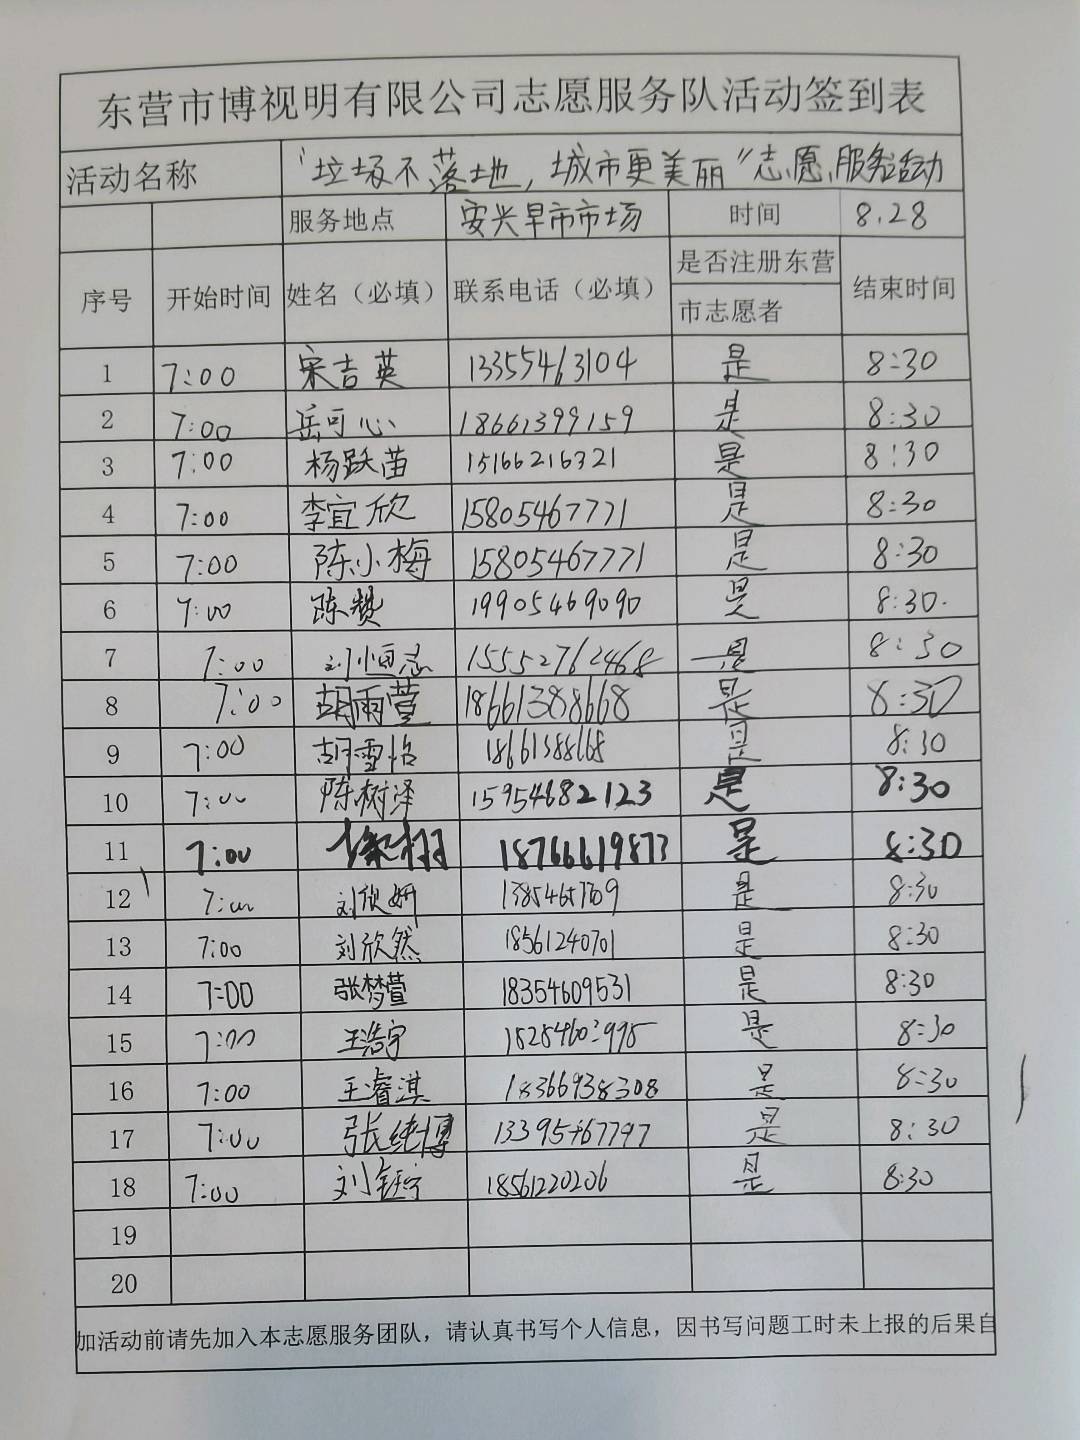 东营市博视明有限公司志愿服务队活动签到表
活动名称 "垃圾不落地，城市更美丽"志愿服务活动
服务地点 安兴早市市场 时间 8.28
序号 开始时间 姓名（必填） 联系电话（必填） 是否注册东营市志愿者 结束时间
1 7:00 宋吉英 13355463104 是 8:30
2 7:00 岳可心 18661399159 是 8:30
3 7:00 杨跃苗 15166216321 是 8:30
4 7:00 李宜欣 15805467771 是 8:30
5 7:00 陈小梅 15805467771 是 8:30
6 7:00 陈赞 19905469090 是 8:30.
7 7:00 刘恒志 15552762468 是 8:30
8 7:00 胡雨萱 18661388668 是 8:30
9 7:00 胡雪怡 是 8:30
10 7:00 陈树泽 15954682123 是 8:30
11 7:00 18766619873 是 8:30
12 7:00 刘欣妍 是 8:30
13 7:00 刘欣然 18561240701 是 8:30
14 7:00 张梦萱 18354609531 是 8:30
15 7:00 王浩宇 是 8:30
16 7:00 王睿淇 18366938308 是 8:30
17 7:00 张纯博 13395467797 是 8:30
18 7:00 刘钰宁 18561220206 是 8:30
19
20
加活动前请先加入本志愿服务团队，请认真书写个人信息，因书写问题工时未上报的后果自